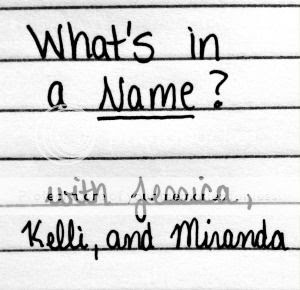 What's in
a Name?
with Jessica,
Kelli, and Miranda